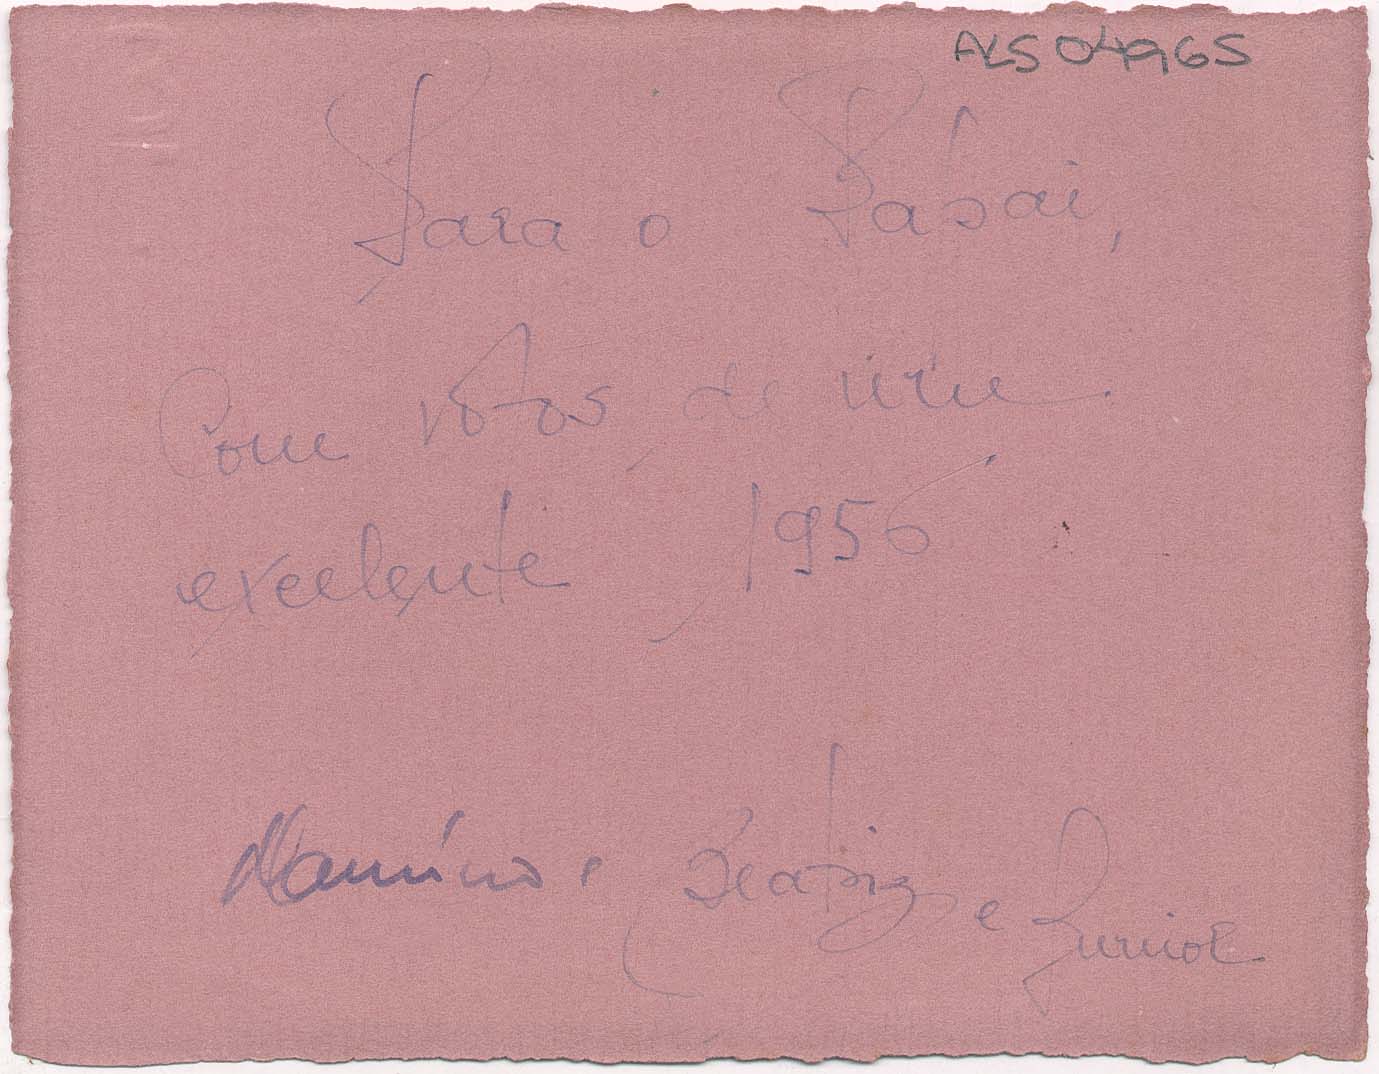 ALS 04965
Para o Pásai,
Com votos de um
excelente 1956
e Beatriz e Junior